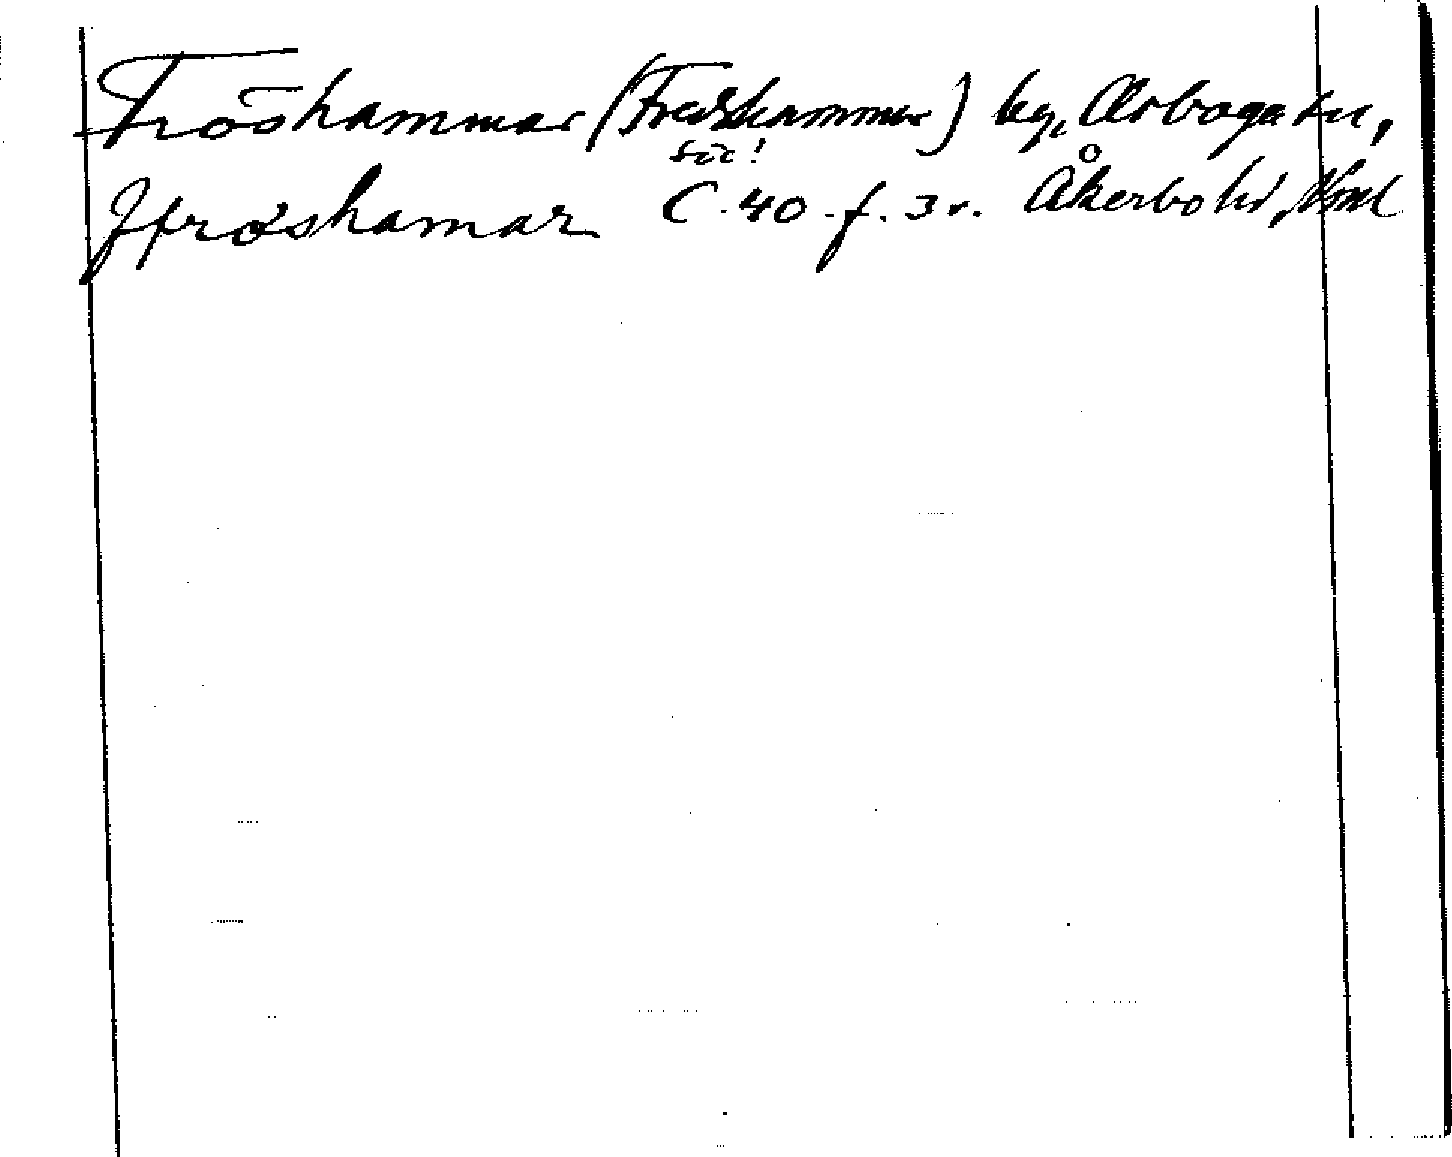 Fröshammar (Fredshammar) by, Arboga ln,
sic!
J frøshamar C. 40. f. 3 v. Åkerbo hd, Vsml